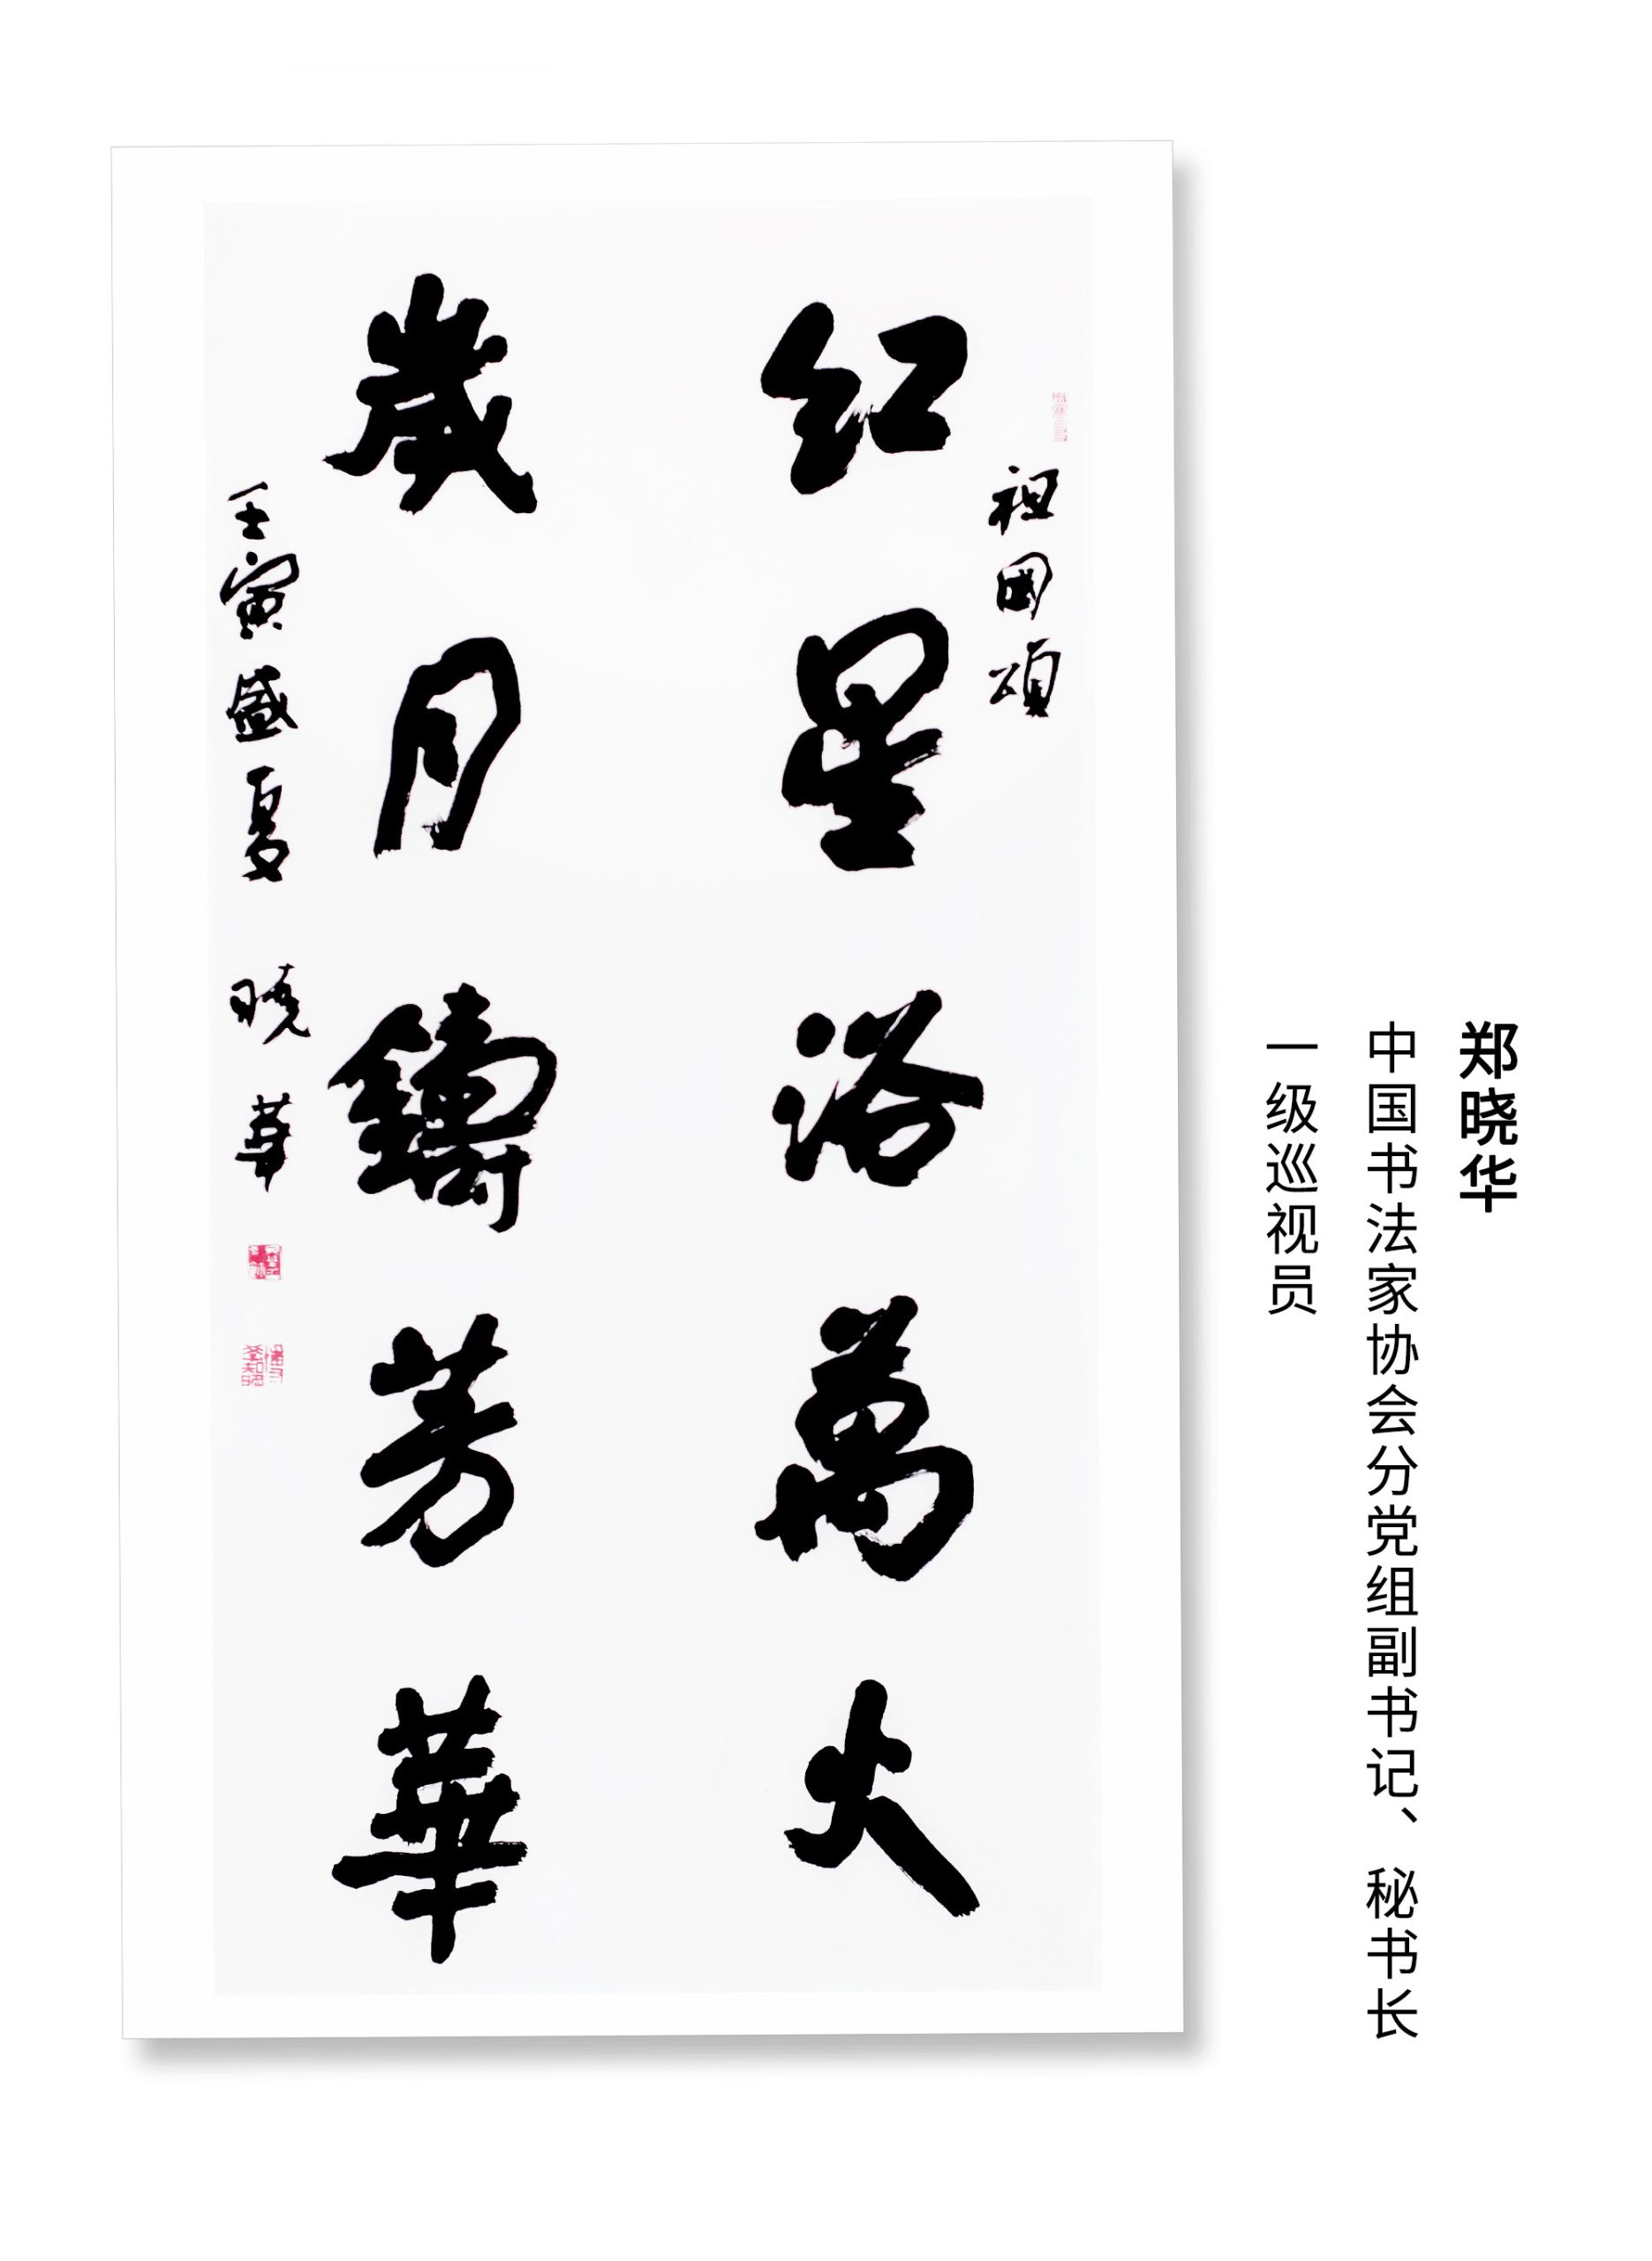 祖國頌
红星浴萬火
歲月鑄芳華
壬寅盛夏 曉華
郑晓华
中国书法家协会分党组副书记、秘书长
一级巡视员